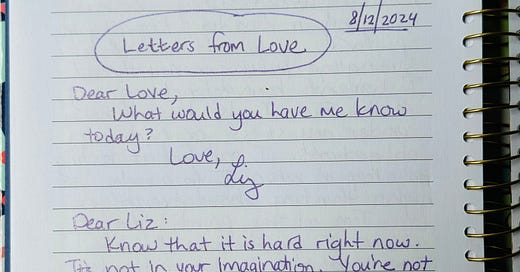 8/12/2024
Letters from Love
Dear Love,
What would you have me know
today?
Love,
Liz
Dear Liz:
Know that it is hard right now.
It's not in your Imagination. You're not